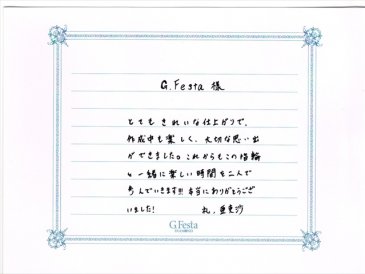 G.Festa 様
とてもきれいな仕上がりで、
作成中も楽しく、大切な思い出
ができました。これからもこの指輪
と一緒に楽しい時間を二人で
歩んでいきます!!! 本当にありがとうござ
いました!
G.Festa